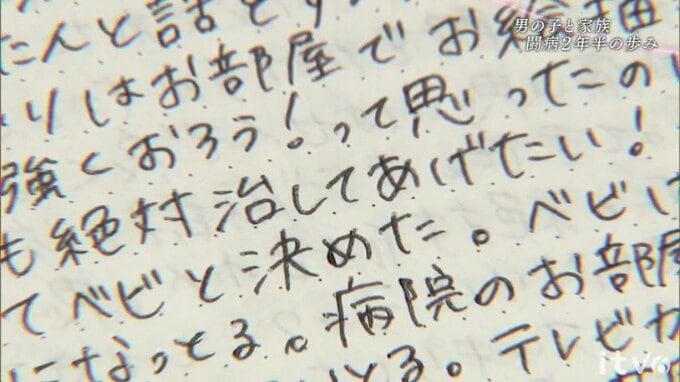 男の子と家族
闘病2年半の歩み
たんと話
りはお部屋でお絵描
強くおろう!って思ったの
も絶対治してあげたい!
てベビと決めた。ベビ
になっとる。病院のお部屋
とる。テレビカ
itv6